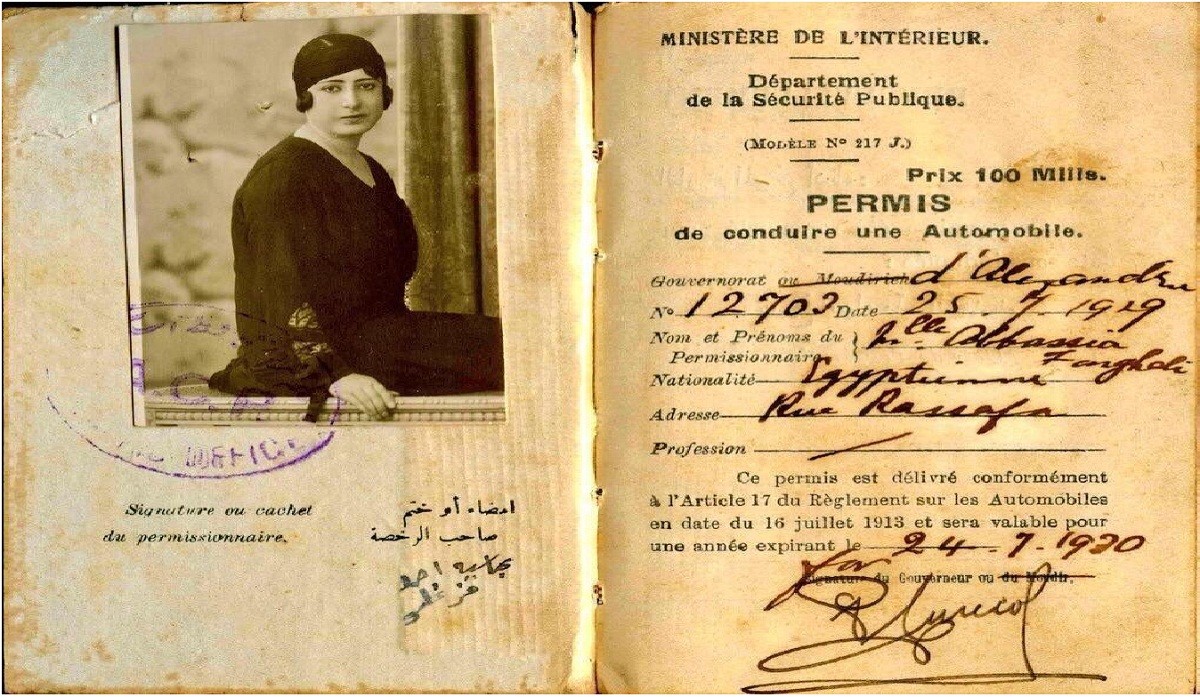 Signature ou cachet
du permissionnaire.
امضاء أو ختم
صاحب الرخصة
OFFICE
MINISTÈRE DE L'INTÉRIEUR.
Département
de la Sécurité Publique.
(MODÈLE N° 217 J.)
Prix 100 Mills.
PERMIS
de conduire une Automobile.
Gouvernorat ou Moudirieh d'Alexandrie
N° 12703 Date 25.7.1929
Nom et Prénoms du Mlle Abbassia
Permissionnaire Farghali
Nationalité Egyptienne
Adresse Rue Rassafa
Profession
Ce permis est délivré conformément
à l'Article 17 du Règlement sur les Automobiles
en date du 16 juillet 1913 et sera valable pour
une année expirant le 24.7.1930
for
Signature du Gouverneur ou du Moudir.